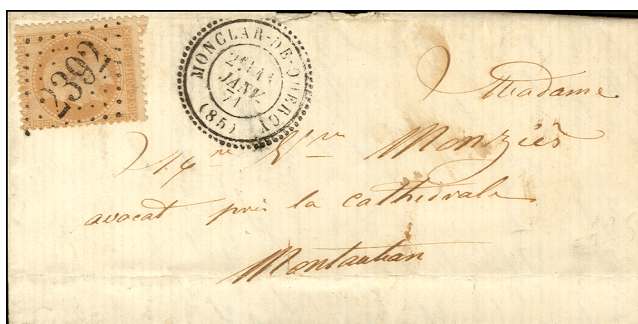 2392
MONCLAR-DE-QUERCY
JANV.
71
(85)
Madame
Monziès
avocat près la cathédrale
Montauban